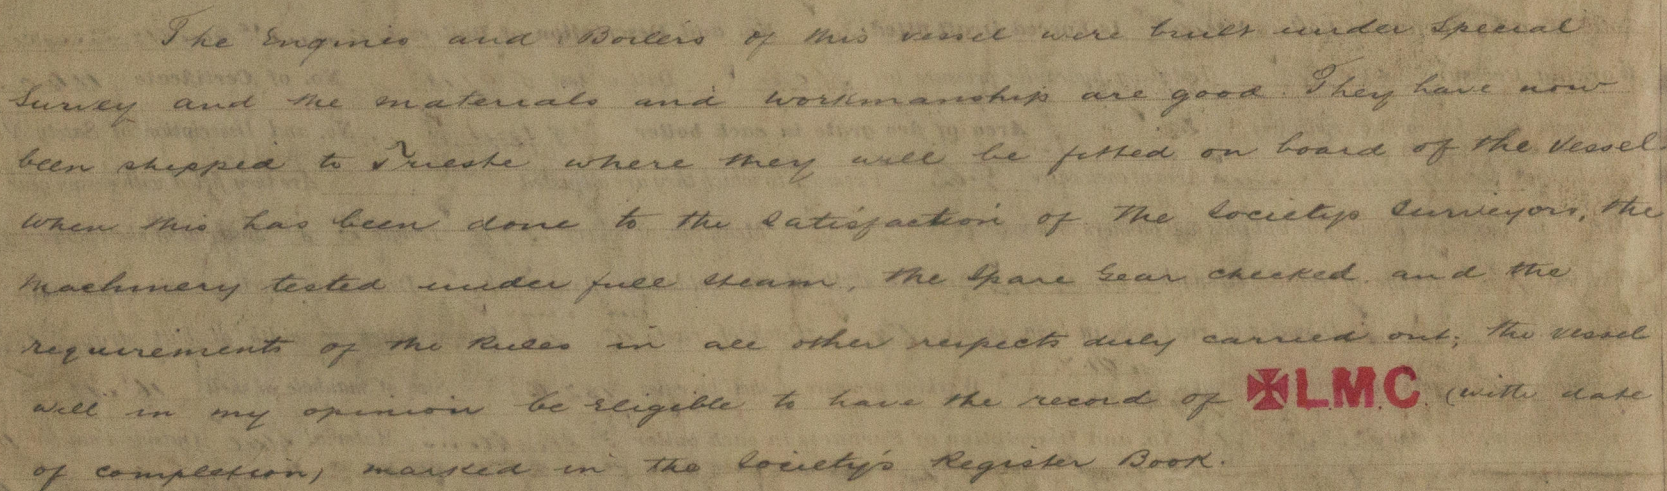 The Engines and Boilers of this vessel were built under Special
Survey and the materials and workmanship are good. They have now
been shipped to Trieste where they will be fitted on board of the vessel.
When this has been done to the satisfaction of the Society's Surveyors, the
Machinery tested under full steam, the Spare Gear checked and the
requirements of the Rules in all other respects duly carried out; the vessel
will in my opinion be eligible to have the record of ✠L.M.C. (with date
of completion) marked in the Society's Register Book.